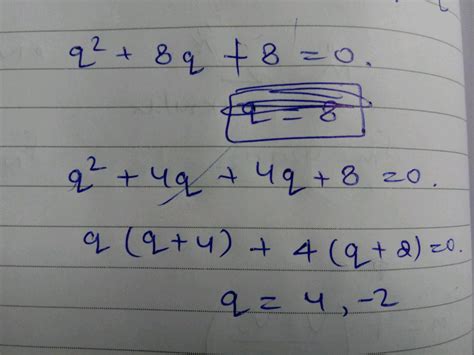 q² + 8q + 8 = 0.
q = 8
q² + 4q + 4q + 8 = 0.
q (q+4) + 4 (q+2) = 0.
q = 4, -2